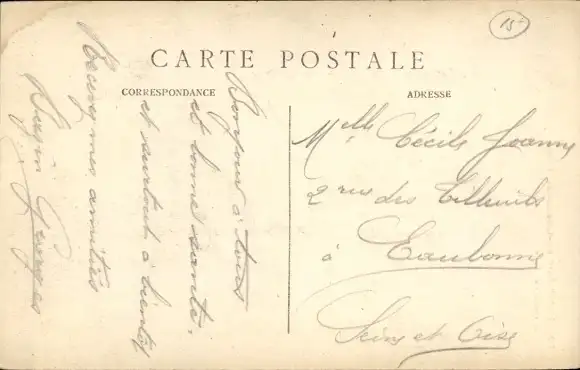 15+
CARTE POSTALE
CORRESPONDANCE
ADRESSE
Bonjour à tous
et bonne santé.
et surtout à bientôt
Recevez mes amitiés
Georges
Melle Cécile Joanny
2 rue des Tilleuls
à Eaubonne
Seine et Oise